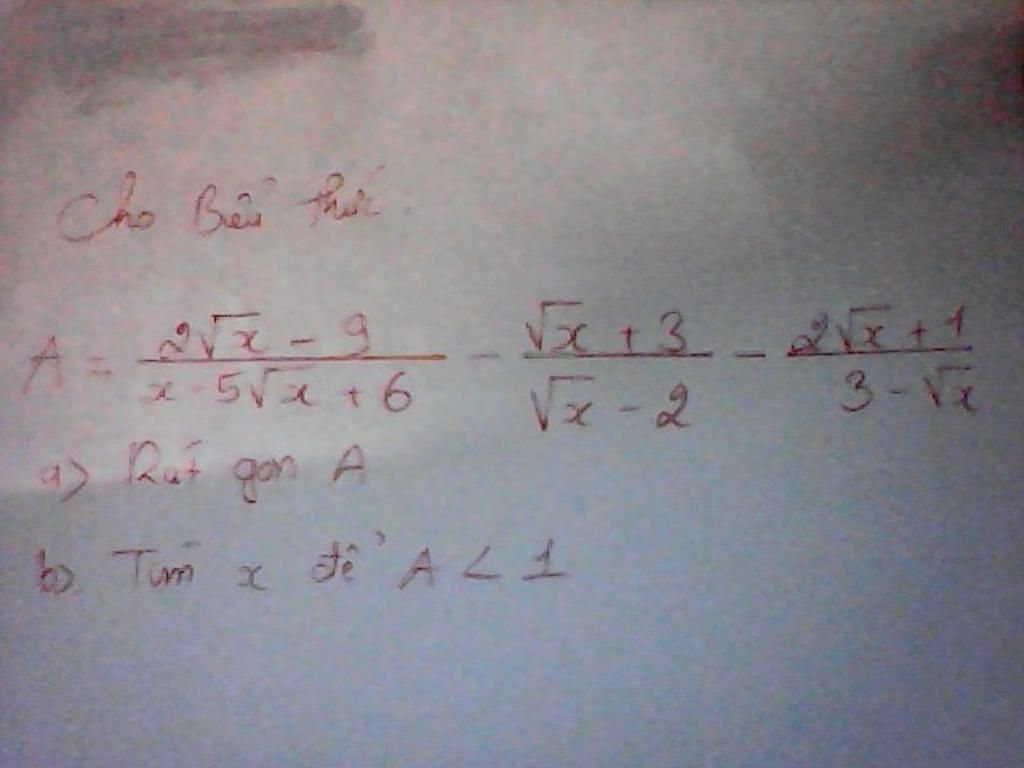 Cho Biểu thức.
A = \frac{2\sqrt{x} - 9}{x - 5\sqrt{x} + 6} - \frac{\sqrt{x} + 3}{\sqrt{x} - 2} - \frac{2\sqrt{x} + 1}{3 - \sqrt{x}}
a) Rút gọn A
b) Tìm x để A < 1